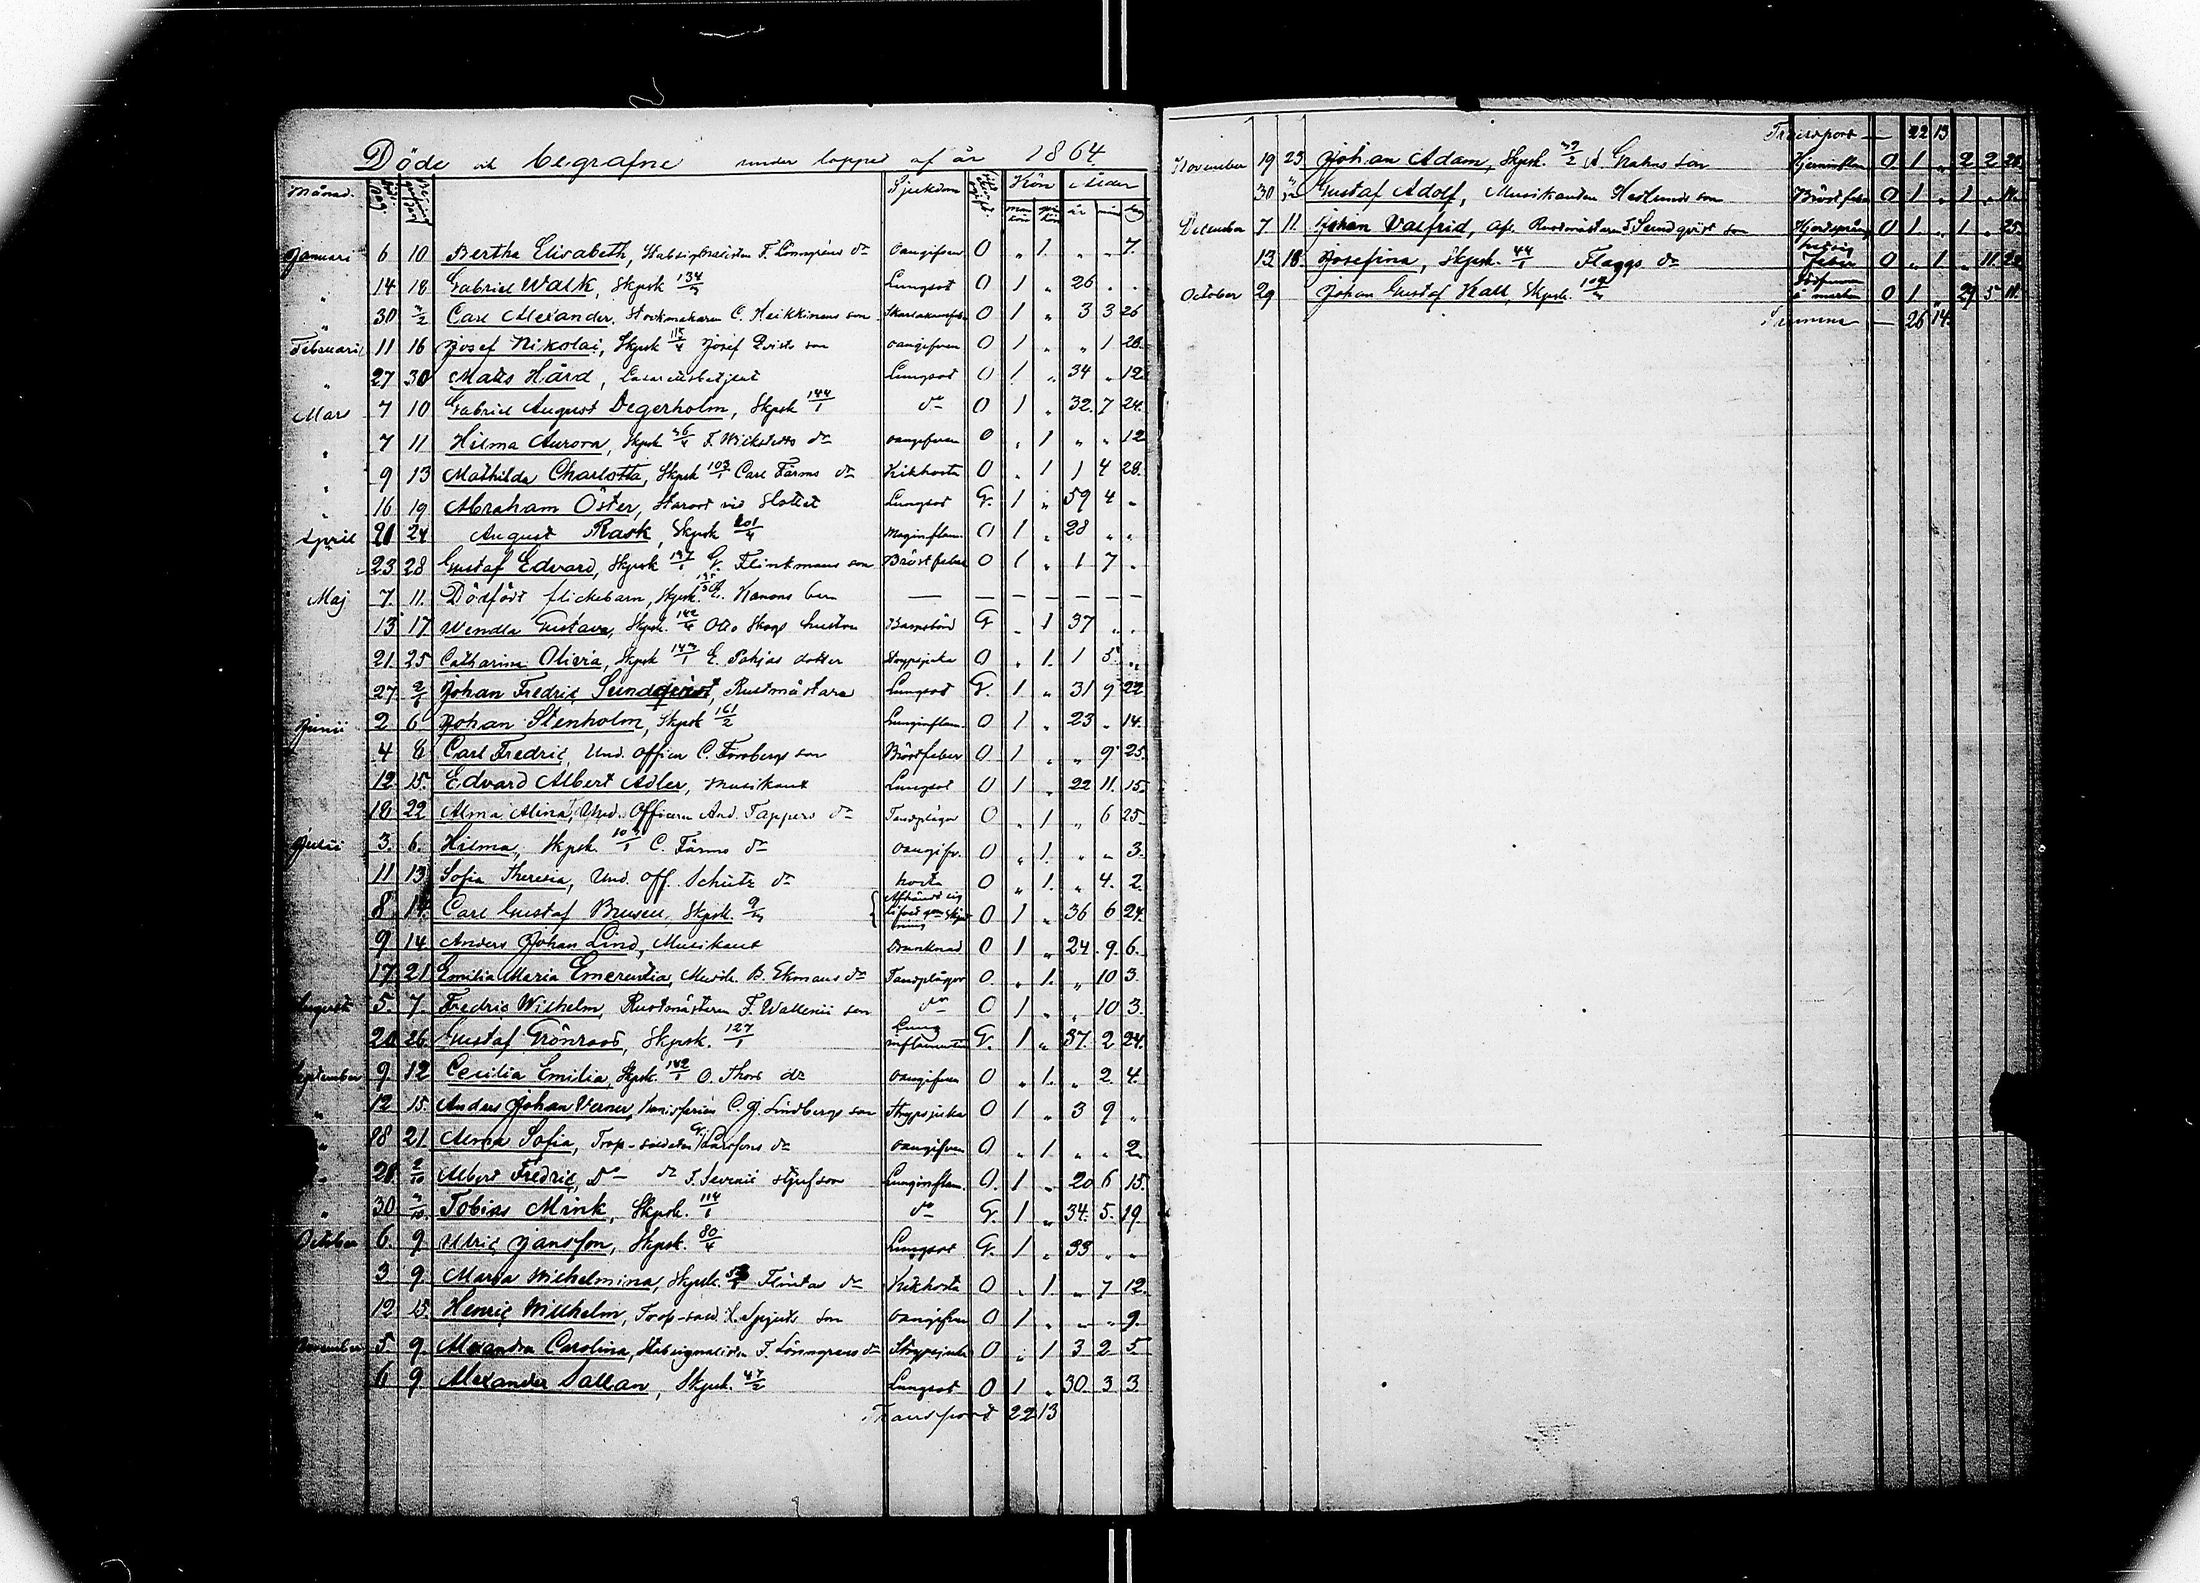 Döde och begrafne under loppet af år 1864
Månad. Sjukdom Kön Ålder
man kön qvin kön år mån dag
Januari 6 10 Bertha Elisabeth, F. Lönngrens dr oangifven O „ 1 „ „ 7.
„ 14 18 Gabriel Walk, Skpsk 134/3 Lungsot O 1 „ 26 „ „
„ 30 3/2 Carl Alexander, Stockmakaren C. Heikkinens son O 1 „ 3 3 26
Februari 11 16 Josef Nikolai, Skpsk 115/4 Josef Qvists son oangifven O 1 „ „ 1 28
„ 27 30 Matts Hård, Lasarettsbetjent Lungsot O 1 „ 34 „ 12
Mars 7 10 Gabriel August Degerholm, Skpsk 144/1 do O 1 „ 32 7 24.
„ 7 11 Hilma Aurora, Skpsk 36/4 F. Wickstedts dr oangifven O „ 1 „ „ 12
„ 9 13 Mathilda Charlotta, Skpsk 103/1 Carl Färms dr Kikhosta O „ 1 1 4 28.
„ 16 19 Abraham Öster, Starost vid Slottet Lungsot G. 1 „ 59 4 „
April 21 24 August Rask, Skpsk 201/4 Maginflam. O 1 „ 28 „ „
23 28 Gustaf Edvard, Skpsk 197/1 G. Flinkmans son Bröstfeber O 1 „ 1 7 „
Maj 7. 11. Dödfödt flickebarn, Skpsk. Kanons barn — — — — — — —
13 17 Wendla Gustava, Skpsk. 142/4 Otto Skogs hustru Barnsbörd G „ 1 37 „ „
21. 25 Catharina Olivia, Skpsk 143/1 E. Pohjas dotter Strypsjuka O „ 1. 1 5. „
27. 2/6 Johan Fredric Sundqvist, Rustmästare Lungsot G. 1 „ 31 9 22
Junii 2 6 Johan Stenholm, Skpsk 161/2 Lunginflam. O 1 „ 23 „ 14.
4 8 Carl Fredric, Und. officer C. Forsbergs son Bröstfeber O 1 „ „ 9 25.
12. 15. Edvard Albert Adler, Musikant Lungsot O 1 „ 22 11. 15.
18 22 Alma Alina, Und. Officern And. Tappers dr Tandplågor O „ 1 „ 6 25.
Julii 3. 6. Hilma, Skpsk. 103/1 C. Färms dr oangifv. O „ 1. „ „ 3.
11 13 Sofia Theresia, Und. Off. Schütz dr hosta O „ 1. „ 4. 2.
8 14. Carl Gustaf Brusell, Skpsk. 9/3 Afhändt sig lifvet O 1 „ 36 6 24.
9 14 Anders Johan Lind, Musikant Drunknad O 1 „ 24. 9. 6.
17. 21 Emilia Maria Emerentia, Musik. B. Ekmans dr Tandplågor O. „ 1. „ 10 3.
Augusti 5. 7. Fredric Wilhelm, Rustmästaren F. Wallenii son do O 1 „ „ 10 3.
20 26 Gustaf Grönroos, Skpsk. 127/1 Lung inflammation G. 1 „ 37. 2 24.
September 9 12 Cecilia Emilia, Skpsk. 142/1 O. Thors dr oangifven O „ 1. „ 2. 4.
„ 12 15. Anders Johan Verner, C. J. Lindbergs son Strypsjuka O 1 „ 3 9 „
„ 18 21. Alma Sofia, Trop-soldaten G. Larssons dr oangifven O „ 1 „ „ 2
„ 28 2/10 Albert Fredric, Do do J. Severii styfson Lunginflam. O. 1 „ 20 6 15.
„ 30 3/10. Tobias Mink, Skpsk. 114/1 do G. 1 „ 34. 5. 19.
October 6. 9 Ulric Jansson, Skpsk. 80/4 Lungsot G. 1 „ 33 „ „
3 9 Maria Wilhelmina, Skpsk. Flintas dr Kikhosta O „ 1. „ 7 12.
12 15. Henric Wilhelm, Trop-sold. H. Spjuts son oangifven O 1 „ „ „ 9.
November 5 9. Alexandra Carolina, F. Lönngrens dr Strypsjuka O „ 1 3 2 5
6 9. Alexander Sallan, Skpsk. 47/2 Lungsot O 1 „ 30. 3 3.
Transport 22 13
Transport — 22 13
November 19 23 Johan Adam, Skpsk. 39/2 Grahns son Hjerninflam O. 1 „ 2 2 28
30 3/12 Gustaf Adolf, Musikanten Hedlunds son Bröstfeber O 1 „ 1 „ 11.
December 7 11. Johan Valfrid, afl. Rustmästaren Sundqvist son O 1. „ 1 „ 25.
13 18. Josefina, Skpsk. 44/1 Flaggs dr feber O „ 1 „ 11. 22
October 29 Johan Gustaf Kall, Skpsk. 109/3 O 1 „ 29 5 11.
Summa — 26 14.